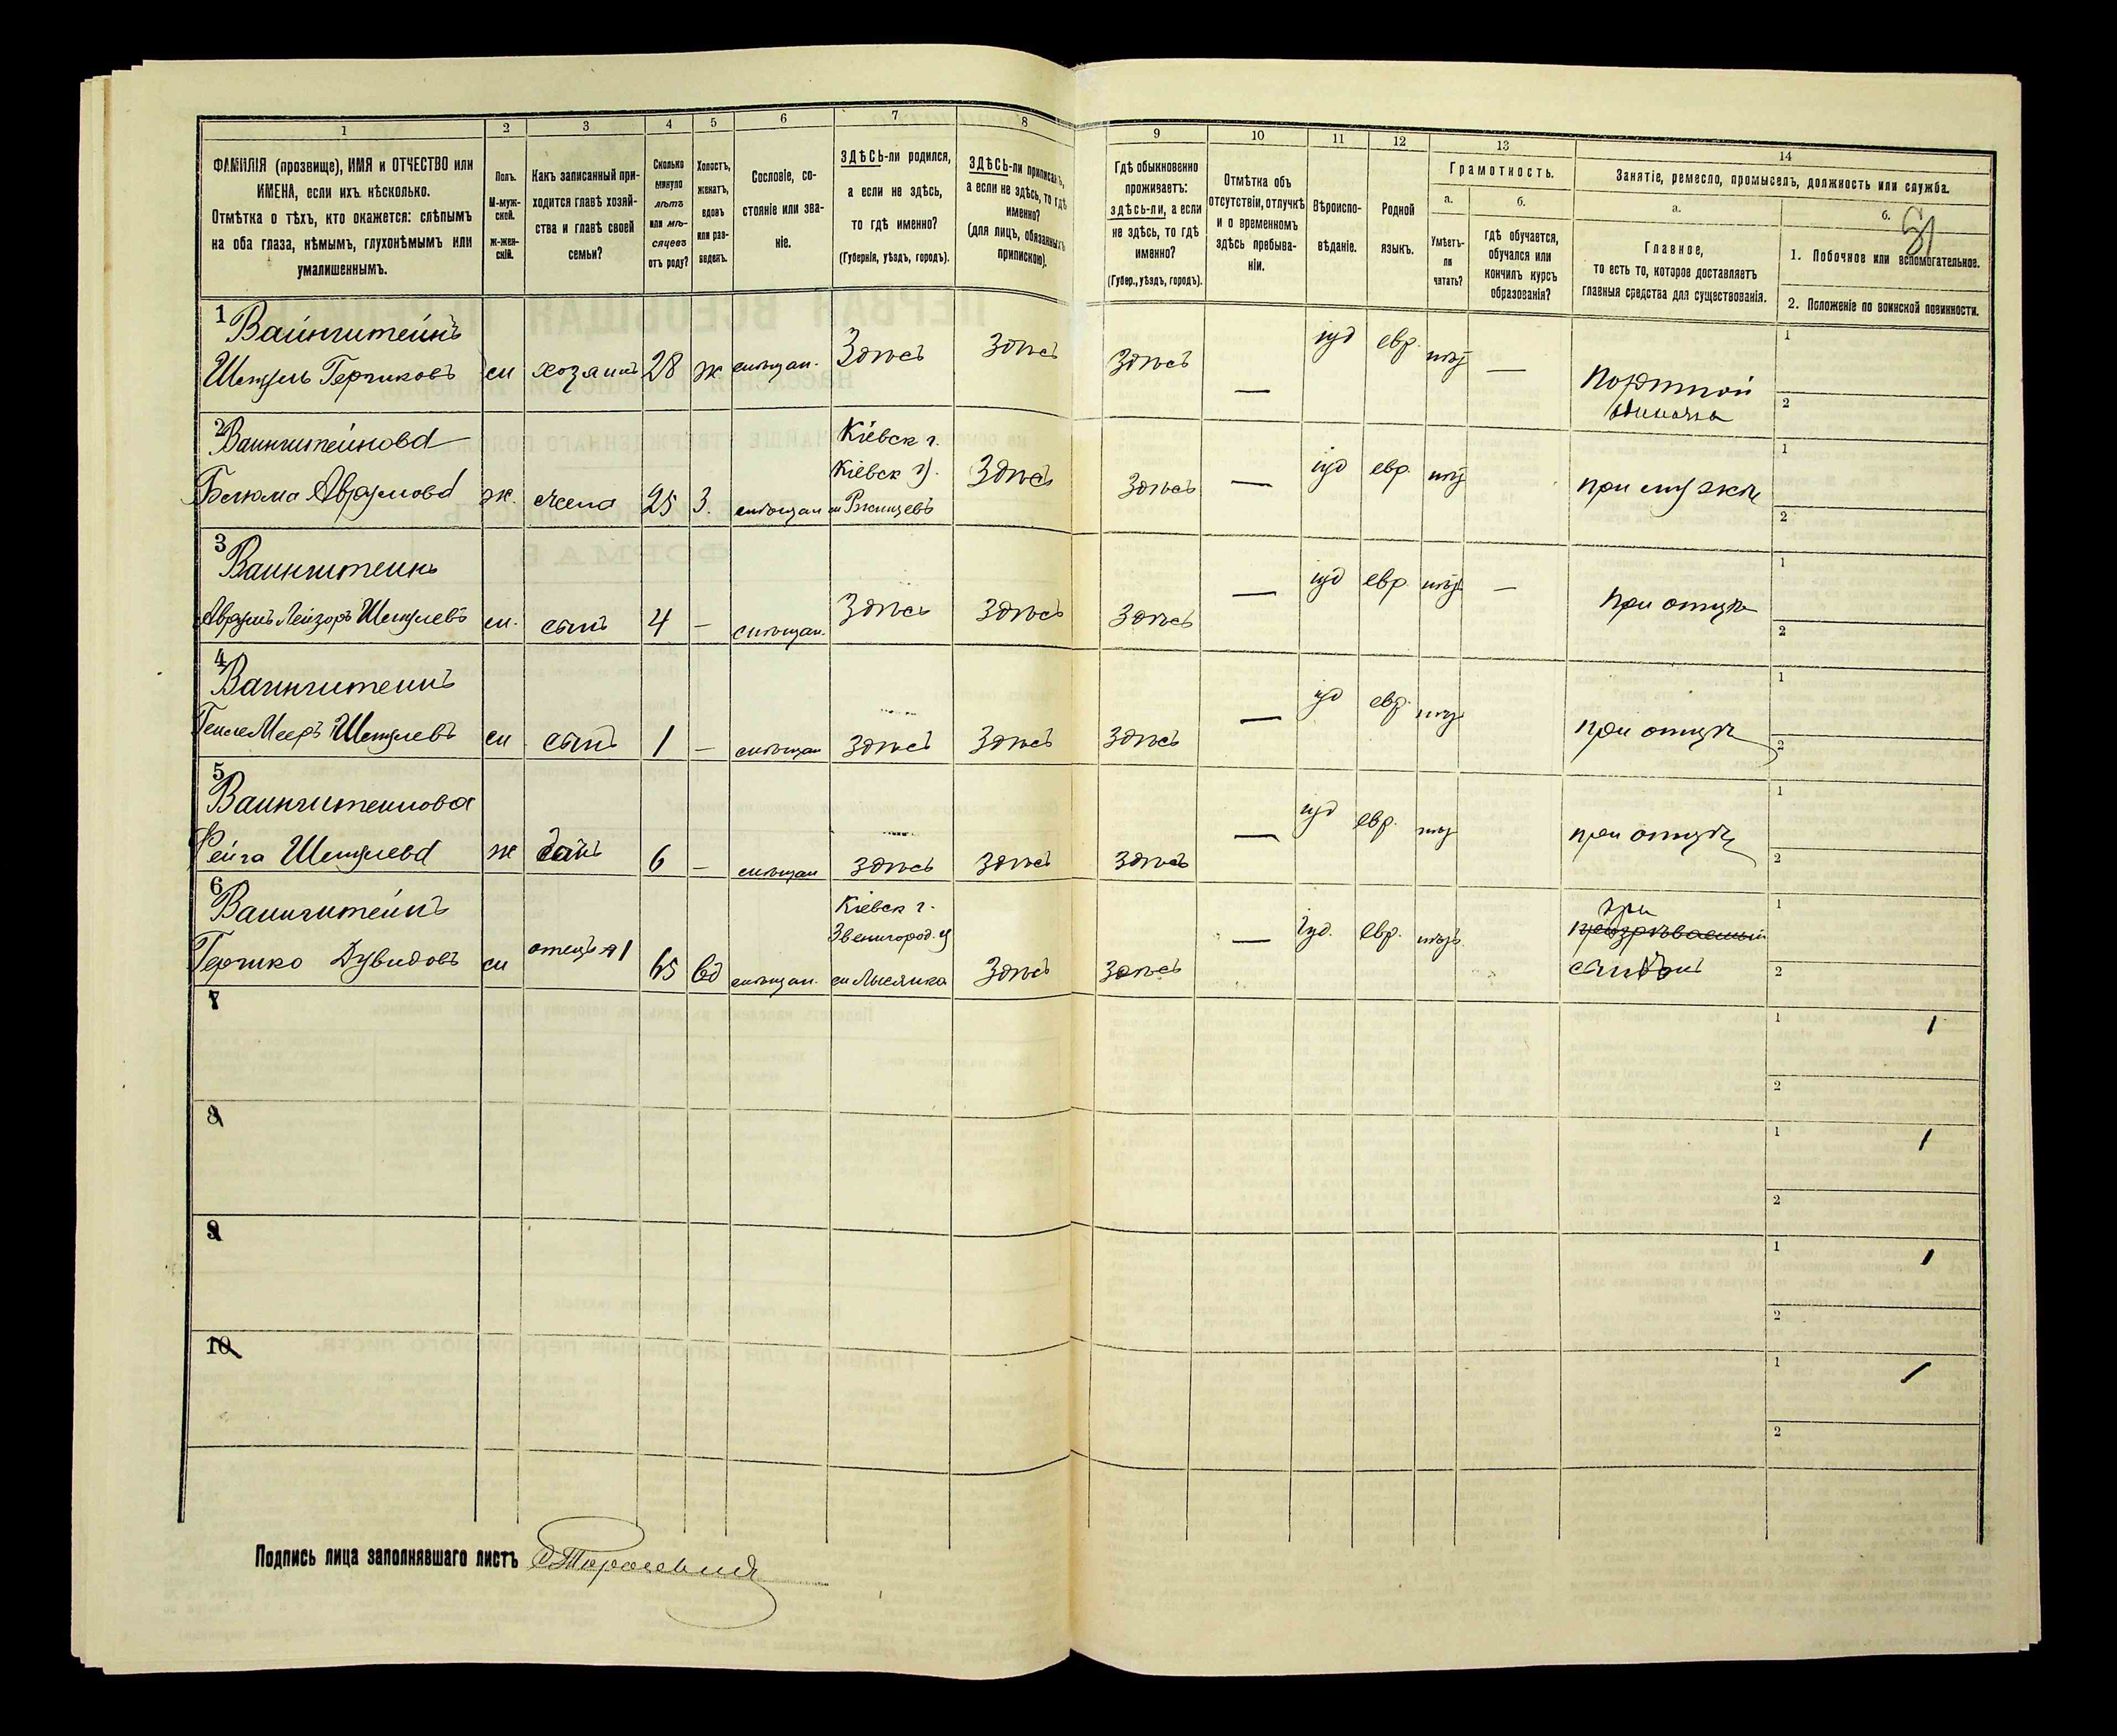 1
2
3
4
5
6
7
8
ФАМИЛІЯ (прозвище), ИМЯ и ОТЧЕСТВО или
ИМЕНА, если ихъ нѣсколько.
Отмѣтка о тѣхъ, кто окажется: слѣпымъ
на оба глаза, нѣмымъ, глухонѣмымъ или
умалишеннымъ.
Полъ.
М-муж-
ской.
Ж-жен-
скій.
Какъ записанный при-
ходится главѣ хозяй-
ства и главѣ своей
семьи?
Сколько
минуло
лѣтъ
или мѣ-
сяцевъ
отъ роду?
Холостъ,
женатъ,
вдовъ
или раз-
веденъ.
Сословіе, со-
стояніе или зва-
ніе.
ЗДѢСЬ-ли родился,
а если не здѣсь,
то гдѣ именно?
(Губернія, уѣздъ, городъ).
ЗДѢСЬ-ли приписанъ,
а если не здѣсь, то гдѣ
именно?
(для лицъ, обязанныхъ
припискою).
9
10
11
12
13
14
Гдѣ обыкновенно
проживаетъ:
здѣсь-ли, а если
не здѣсь, то гдѣ
именно?
(Губер., уѣздъ, городъ).
Отмѣтка объ
отсутствіи, отлучкѣ
и о временномъ
здѣсь пребыва-
ніи.
Вѣроиспо-
вѣданіе.
Родной
языкъ.
Грамотность.
а.
Умѣетъ-
ли
читать?
б.
гдѣ обучается,
обучался или
кончилъ курсъ
образованія?
Занятіе, ремесло, промыселъ, должность или служба.
а.
Главное,
то есть то, которое доставляетъ
главныя средства для существованія.
б.
1. Побочное или вспомогательное.
2. Положеніе по воинской повинности.
1
Вайнштейнъ
Шмуль Гершковъ м хозяинъ 28 ж мѣщан. Здѣсь Здѣсь Здѣсь — іуд евр. нѣт — Портной
1
2
2
Вайнштейнова
Аврумова ж. жена 25 з. мѣщан
Кіевск г.
Кіевск у.
м Ржищевъ
Здѣсь Здѣсь — іуд евр. нѣт при мужѣ
1
2
3
Вайнштейнъ
Аврумъ Лейзоръ Шмулевъ м. сынъ 4 — мѣщан. Здѣсь Здѣсь Здѣсь — іуд евр. нѣт — при отцѣ
1
2
4
Вайнштейнъ
Мееръ Шмулевъ м сынъ 1 — мѣщан здѣсь Здѣсь Здѣсь — іуд евр. нѣт при отцѣ
1
2
5
Вайнштейнова
Фейга Шмулева ж 6 — мѣщан здѣсь здѣсь здѣсь — іуд евр. нѣт при отцѣ
1
2
6
Вайнштейнъ
Гершко Дувидовъ м отецъ я1 65 вд мѣщан.
Кіевск г.
Звенигород. у
м Лысянка
Здѣсь Здѣсь — Іуд. евр. нѣтъ
при
сынѣ
1
2
7
1
2
8
1
2
9
1
2
10
1
2
Подпись лица заполнявшаго листъ